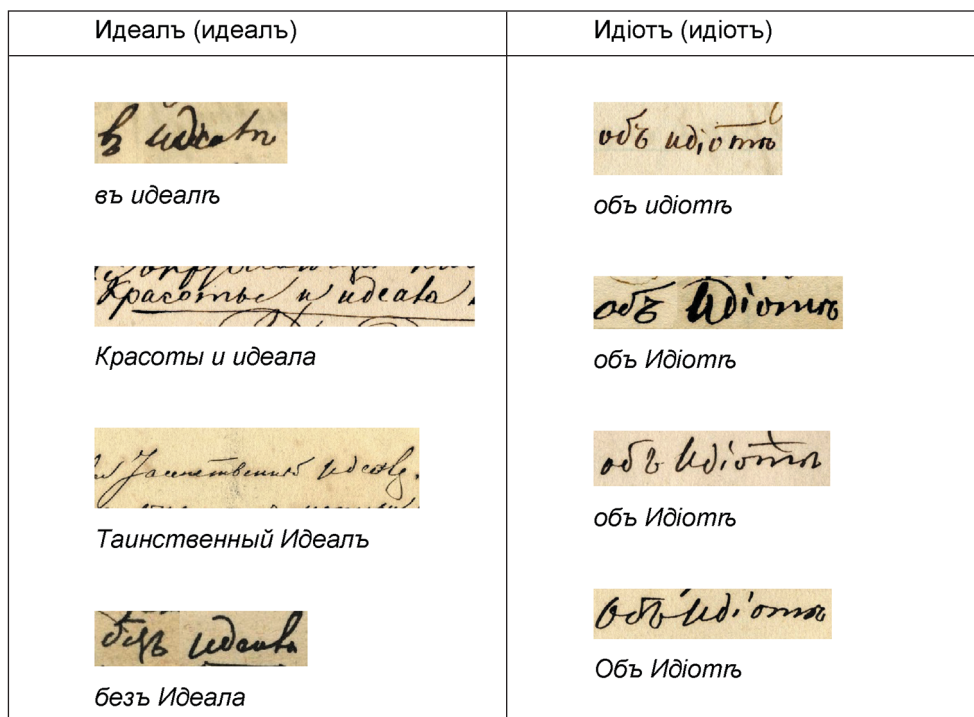 Идеалъ (идеалъ)
въ идеалъ
въ идеалѣ
Красоты и идеала
Красоты и идеала
Таинственный идеалъ.
Таинственный Идеалъ
безъ Идеала
безъ Идеала
Идіотъ (идіотъ)
объ идіотѣ
объ идіотѣ
объ Идіотѣ
объ Идіотѣ
объ Идіотѣ
объ Идіотѣ
Объ Идіотѣ
Объ Идіотѣ